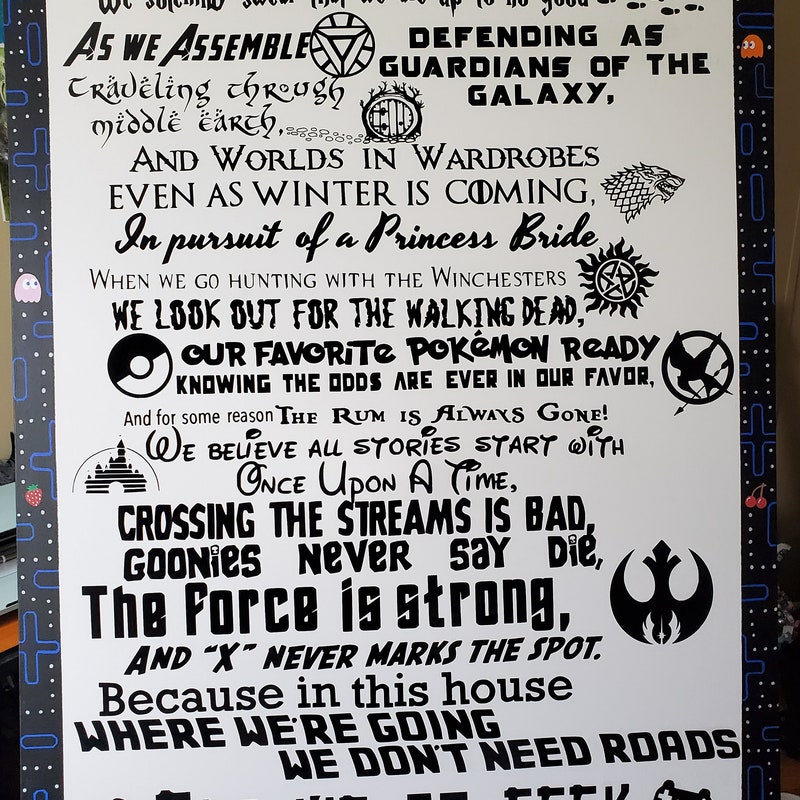 We solemnly swear that we are up to no good
As we Assemble
Defending as
Guardians of the
Galaxy,
Traveling through
middle earth,
And Worlds in Wardrobes
Even as Winter is Coming,
In pursuit of a Princess Bride
When we go hunting with the Winchesters
We look out for the Walking Dead,
Our favorite Pokémon ready
Knowing the odds are ever in our favor,
And for some reason The Rum is Always Gone!
We believe all stories start with
Once Upon A Time,
Crossing the streams is bad,
Goonies never say die,
The force is strong,
And "X" never marks the spot.
Because in this house
Where we're going
We don't need roads